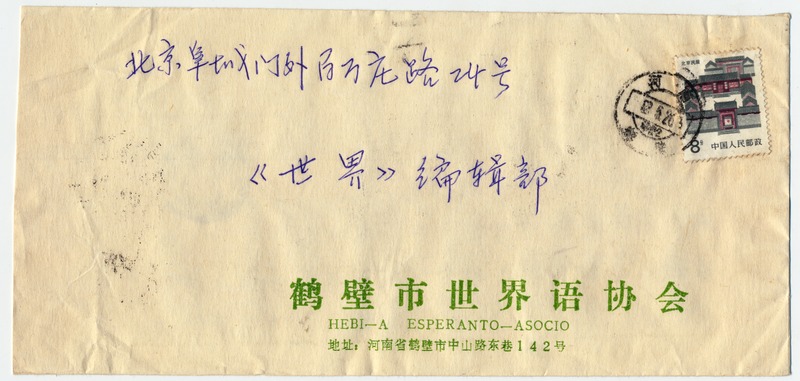 北京阜城门外百万庄路24号
《世界》编辑部
北京民居
8分
中国人民邮政
河南
鹤壁市世界语协会
HEBI—A ESPERANTO—ASOCIO
地址：河南省鹤壁市中山路东巷142号